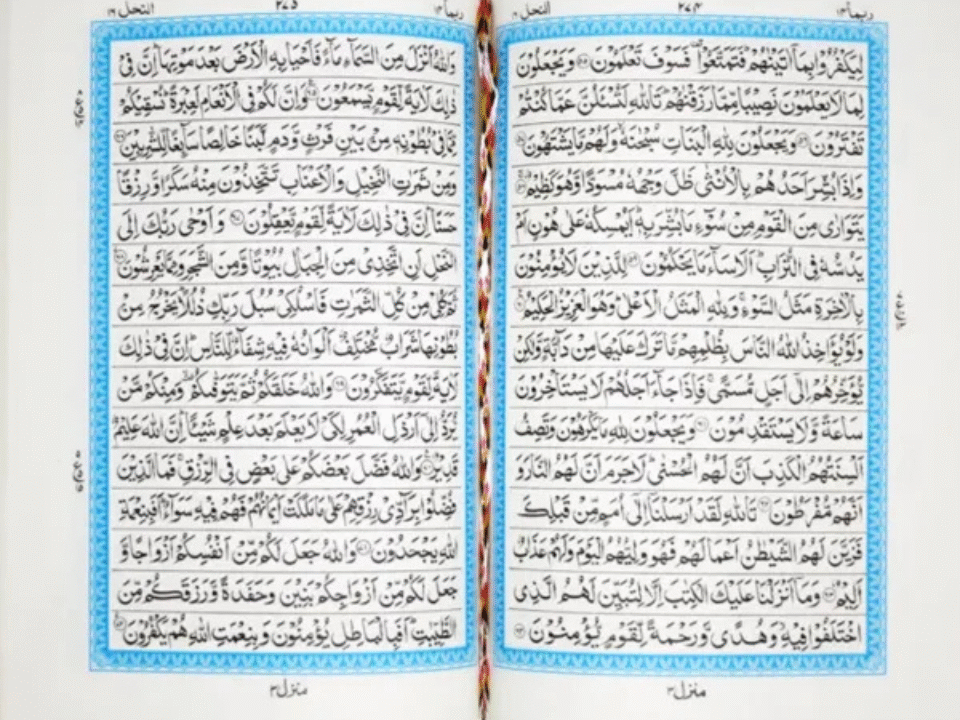 ربما ١٤ ٢٧٤ النحل ١٦
لِيَكْفُرُوْا بِمَاۤ اٰتَيْنٰهُمْ فَتَمَتَّعُوْا فَسَوْفَ تَعْلَمُوْنَ ۝۵۵ وَيَجْعَلُوْنَ
لِمَا لَا يَعْلَمُوْنَ نَصِيْبًا مِّمَّا رَزَقْنٰهُمْ تَاللّٰهِ لَتُسْـَٔلُنَّ عَمَّا كُنْتُمْ
تَفْتَرُوْنَ ۝۵۶ وَيَجْعَلُوْنَ لِلّٰهِ الْبَنٰتِ سُبْحٰنَهٗ وَلَهُمْ مَّا يَشْتَهُوْنَ ۝۵۷
وَاِذَا بُشِّرَ اَحَدُهُمْ بِالْاُنْثٰى ظَلَّ وَجْهُهٗ مُسْوَدًّا وَّهُوَ كَظِيْمٌ ۝۵۸
يَتَوَارٰى مِنَ الْقَوْمِ مِنْ سُوْٓءِ مَا بُشِّرَ بِهٖ اَيُمْسِكُهٗ عَلٰى هُوْنٍ اَمْ
يَدُسُّهٗ فِى التُّرَابِ اَلَا سَآءَ مَا يَحْكُمُوْنَ ۝۵۹ لِلَّذِيْنَ لَا يُؤْمِنُوْنَ
بِالْاٰخِرَةِ مَثَلُ السَّوْءِ وَلِلّٰهِ الْمَثَلُ الْاَعْلٰى وَهُوَ الْعَزِيْزُ الْحَكِيْمُ ۝۶۰
وَلَوْ يُؤَاخِذُ اللّٰهُ النَّاسَ بِظُلْمِهِمْ مَّا تَرَكَ عَلَيْهَا مِنْ دَآبَّةٍ وَّلٰكِنْ
يُّؤَخِّرُهُمْ اِلٰٓى اَجَلٍ مُّسَمًّى فَاِذَا جَآءَ اَجَلُهُمْ لَا يَسْتَاْخِرُوْنَ
سَاعَةً وَّلَا يَسْتَقْدِمُوْنَ ۝۶۱ وَيَجْعَلُوْنَ لِلّٰهِ مَا يَكْرَهُوْنَ وَتَصِفُ
اَلْسِنَتُهُمُ الْكَذِبَ اَنَّ لَهُمُ الْحُسْنٰى لَا جَرَمَ اَنَّ لَهُمُ النَّارَ وَ
اَنَّهُمْ مُّفْرَطُوْنَ ۝۶۲ تَاللّٰهِ لَقَدْ اَرْسَلْنَاۤ اِلٰٓى اُمَمٍ مِّنْ قَبْلِكَ
فَزَيَّنَ لَهُمُ الشَّيْطٰنُ اَعْمَالَهُمْ فَهُوَ وَلِيُّهُمُ الْيَوْمَ وَلَهُمْ عَذَابٌ
اَلِيْمٌ ۝۶۳ وَمَاۤ اَنْزَلْنَا عَلَيْكَ الْكِتٰبَ اِلَّا لِتُبَيِّنَ لَهُمُ الَّذِى
اخْتَلَفُوْا فِيْهِ وَهُدًى وَّرَحْمَةً لِّقَوْمٍ يُّؤْمِنُوْنَ ۝۶۴
منزل ٣
ربما ١٤ ٢٧٥ النحل ١٦
وَاللّٰهُ اَنْزَلَ مِنَ السَّمَآءِ مَآءً فَاَحْيَا بِهِ الْاَرْضَ بَعْدَ مَوْتِهَا اِنَّ فِىْ
ذٰلِكَ لَاٰيَةً لِّقَوْمٍ يَّسْمَعُوْنَ ۝۶۵ وَاِنَّ لَكُمْ فِى الْاَنْعَامِ لَعِبْرَةً نُسْقِيْكُمْ
مِّمَّا فِىْ بُطُوْنِهٖ مِنْۢ بَيْنِ فَرْثٍ وَّدَمٍ لَّبَنًا خَالِصًا سَآئِغًا لِّلشّٰرِبِيْنَ ۝۶۶
وَمِنْ ثَمَرٰتِ النَّخِيْلِ وَالْاَعْنَابِ تَتَّخِذُوْنَ مِنْهُ سَكَرًا وَّرِزْقًا
حَسَنًا اِنَّ فِىْ ذٰلِكَ لَاٰيَةً لِّقَوْمٍ يَّعْقِلُوْنَ ۝۶۷ وَاَوْحٰى رَبُّكَ اِلَى
النَّحْلِ اَنِ اتَّخِذِىْ مِنَ الْجِبَالِ بُيُوْتًا وَّمِنَ الشَّجَرِ وَمِمَّا يَعْرِشُوْنَ ۝۶۸
ثُمَّ كُلِىْ مِنْ كُلِّ الثَّمَرٰتِ فَاسْلُكِىْ سُبُلَ رَبِّكِ ذُلُلًا يَخْرُجُ مِنْۢ
بُطُوْنِهَا شَرَابٌ مُّخْتَلِفٌ اَلْوَانُهٗ فِيْهِ شِفَآءٌ لِّلنَّاسِ اِنَّ فِىْ ذٰلِكَ
لَاٰيَةً لِّقَوْمٍ يَّتَفَكَّرُوْنَ ۝۶۹ وَاللّٰهُ خَلَقَكُمْ ثُمَّ يَتَوَفّٰىكُمْ وَمِنْكُمْ مَّنْ
يُّرَدُّ اِلٰٓى اَرْذَلِ الْعُمُرِ لِكَىْ لَا يَعْلَمَ بَعْدَ عِلْمٍ شَيْـًٔا اِنَّ اللّٰهَ عَلِيْمٌ
قَدِيْرٌ ۝۷۰ وَاللّٰهُ فَضَّلَ بَعْضَكُمْ عَلٰى بَعْضٍ فِى الرِّزْقِ فَمَا الَّذِيْنَ
فُضِّلُوْا بِرَآدِّىْ رِزْقِهِمْ عَلٰى مَا مَلَكَتْ اَيْمَانُهُمْ فَهُمْ فِيْهِ سَوَآءٌ اَفَبِنِعْمَةِ
اللّٰهِ يَجْحَدُوْنَ ۝۷۱ وَاللّٰهُ جَعَلَ لَكُمْ مِّنْ اَنْفُسِكُمْ اَزْوَاجًا وَّ
جَعَلَ لَكُمْ مِّنْ اَزْوَاجِكُمْ بَنِيْنَ وَحَفَدَةً وَّرَزَقَكُمْ مِّنَ
الطَّيِّبٰتِ اَفَبِالْبَاطِلِ يُؤْمِنُوْنَ وَبِنِعْمَتِ اللّٰهِ هُمْ يَكْفُرُوْنَ ۝۷۲
منزل ٣